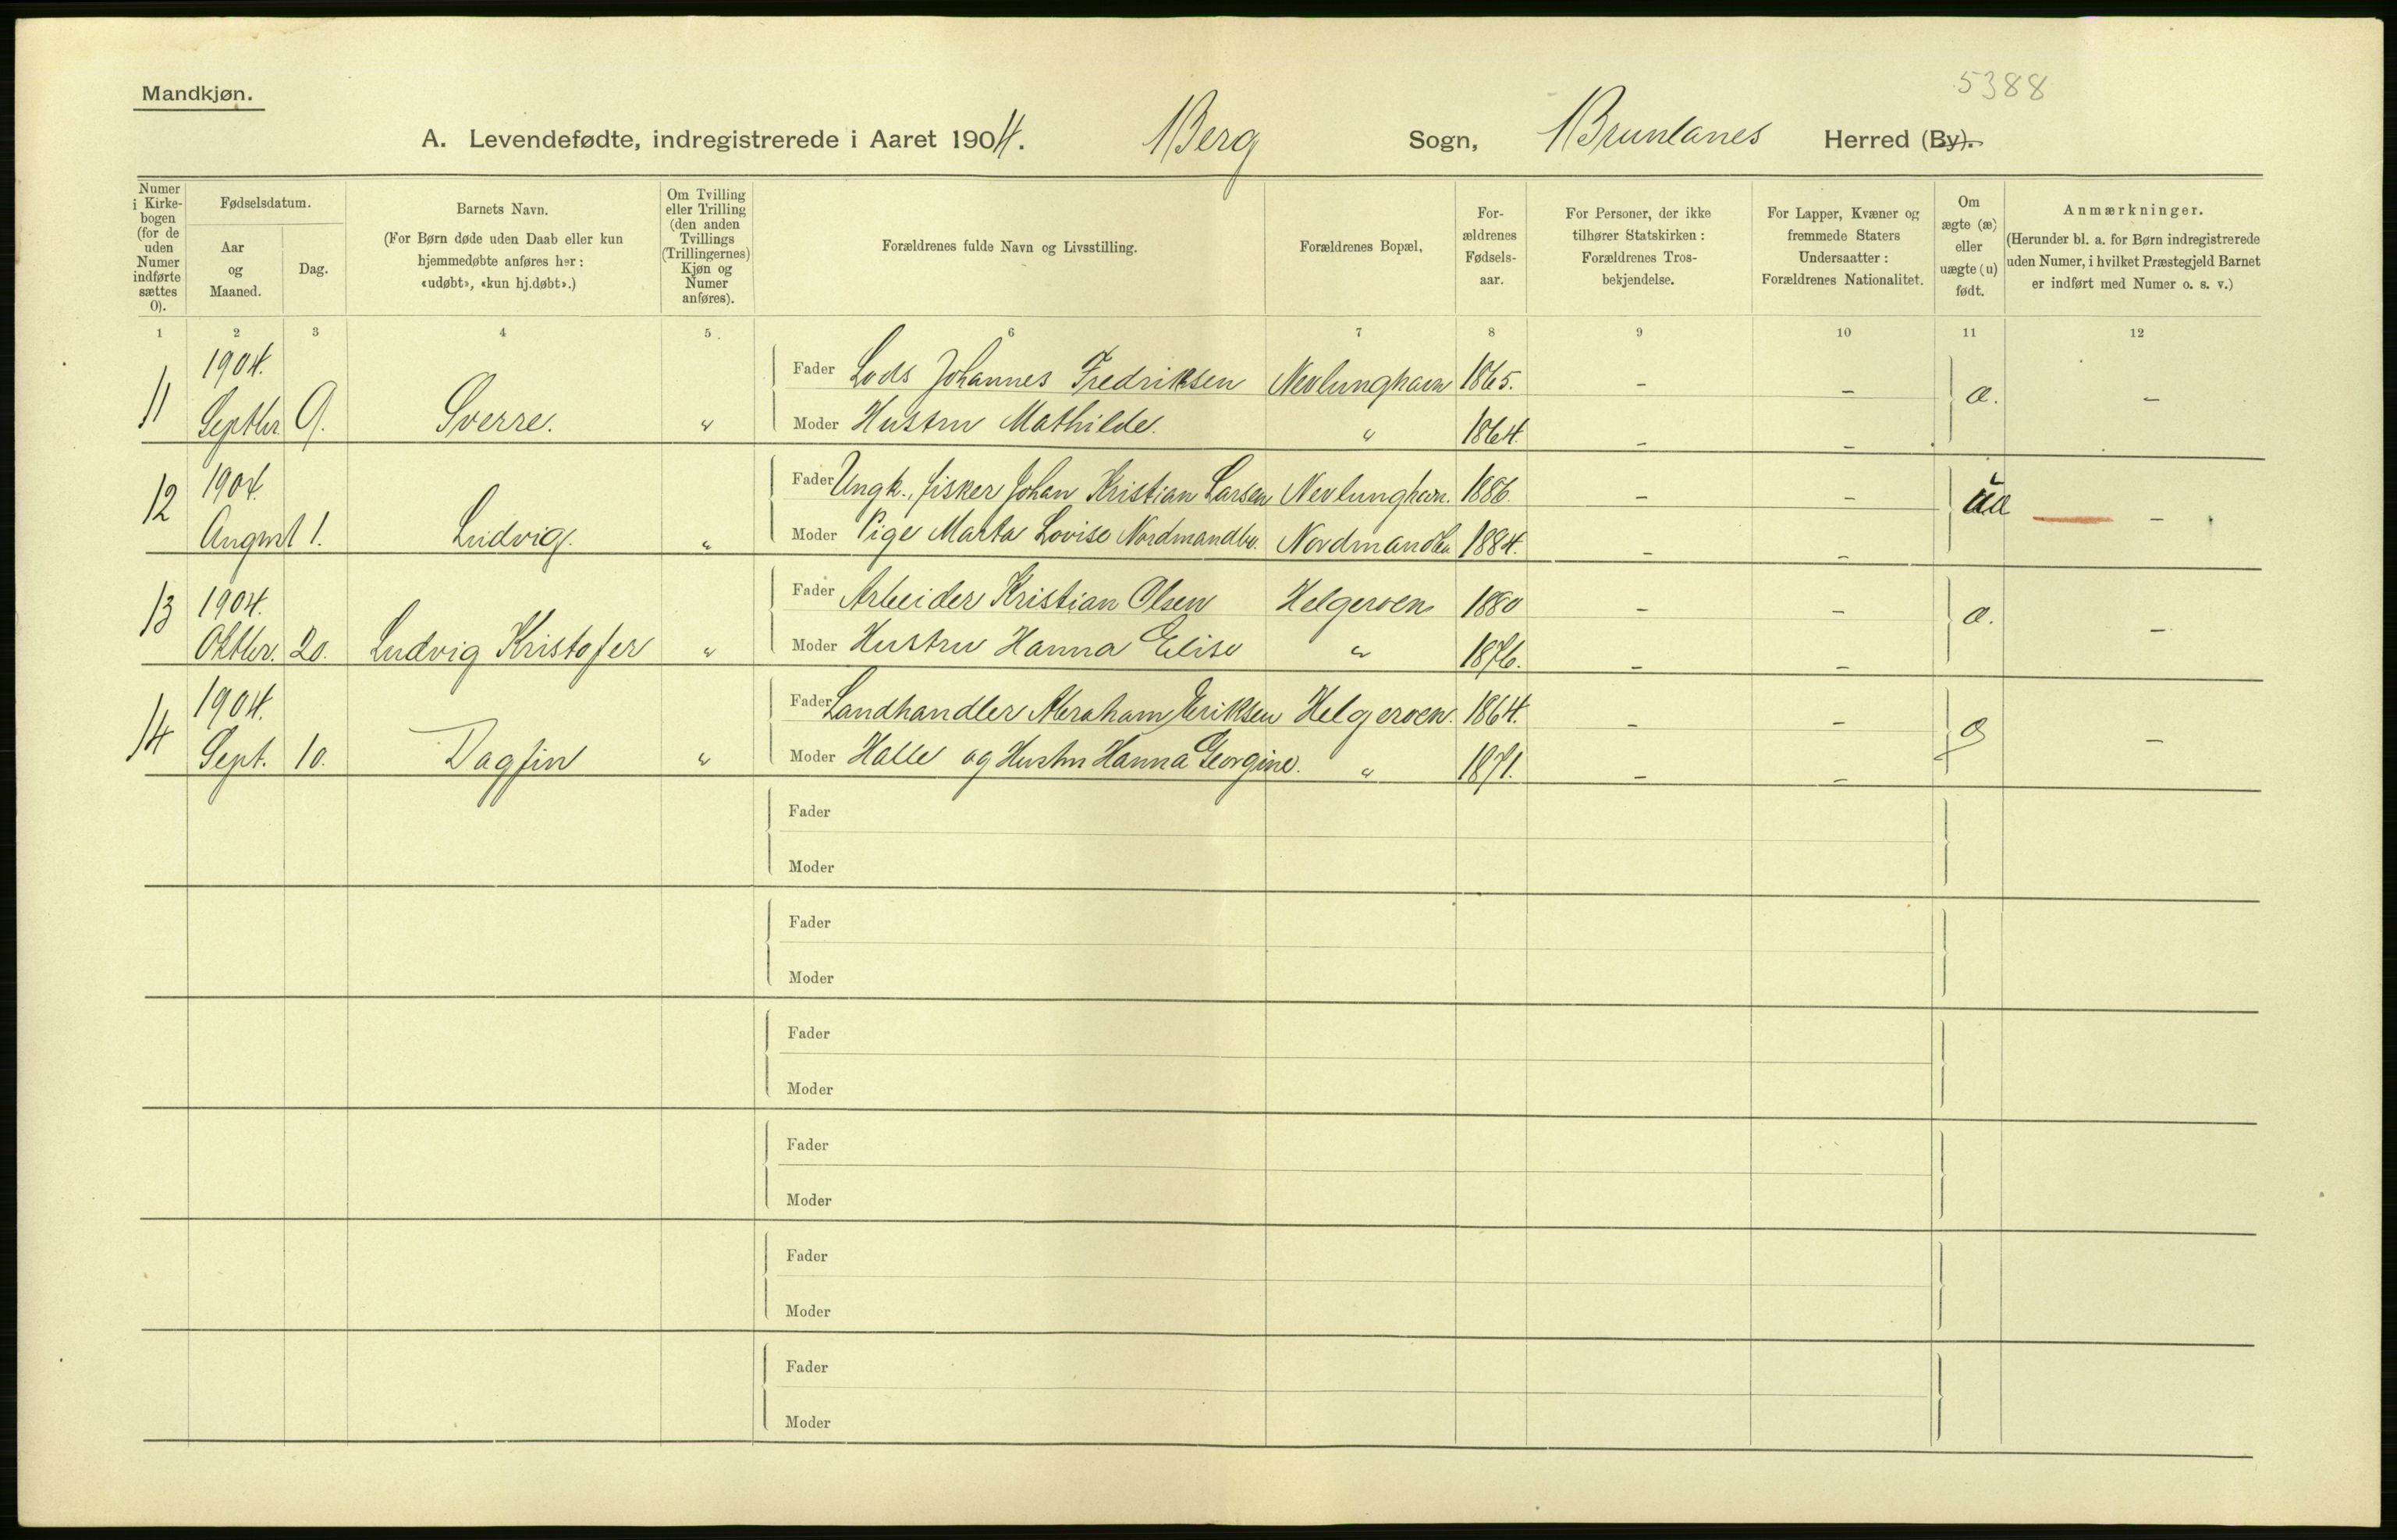 5388
Mandkjøn.
A. Levendefødte, indregistrerede i Aaret 1904. Berg Sogn, Brunlanes Herred (By).
Numer i Kirke-bogen (for de uden Numer indførte sættes 0).
Fødselsdatum.
Aar og Maaned.
Dag.
Barnets Navn.
(For Børn døde uden Daab eller kun hjemmedøbte anføres her: «udøbt», «kun hj.døbt».)
Om Tvilling eller Trilling (den anden Tvillings (Trillingernes) Kjøn og Numer anføres).
Forældrenes fulde Navn og Livsstilling.
Forældrenes Bopæl,
For-ældrenes Fødsels-aar.
For Personer, der ikke tilhører Statskirken: Forældrenes Tros-bekjendelse.
For Lapper, Kvæner og fremmede Staters Undersaatter: Forældrenes Nationalitet.
Om ægte (æ) eller uægte (u) født.
Anmærkninger.
(Herunder bl. a. for Børn indregistrerede uden Numer, i hvilket Præstegjeld Barnet er indført med Numer o. s. v.)
1 2 3 4 5 6 7 8 9 10 11 12
11 1904. Septbr. 9. Sverre. "
Fader Lods Johannes Fredriksen Nevlunghavn 1865. - - æ. -
Moder Hustru Mathilde. " 1864. - -
12 1904. August 1. Ludvig. "
Fader Ungk., fisker Johan Kristian Larsen Nevlunghavn. 1886. - - -
Moder Pige Marta Lovise Nordmandbu. 1884. - -
13 1904. Oktbr. 20. Ludvig Kristofer "
Fader Arbeider Kristian Olsen Helgeroen 1880 - - æ. -
Moder Hustru Hanna Elise " 1876. - -
14 1904. Sept. 10. Dagfin "
Fader Landhandler Abraham Eriksen Helgeroen. 1864. - - -
Moder Halle og Hustru Hanna Georgine. " 1871. - -
Fader
Moder
Fader
Moder
Fader
Moder
Fader
Moder
Fader
Moder
Fader
Moder